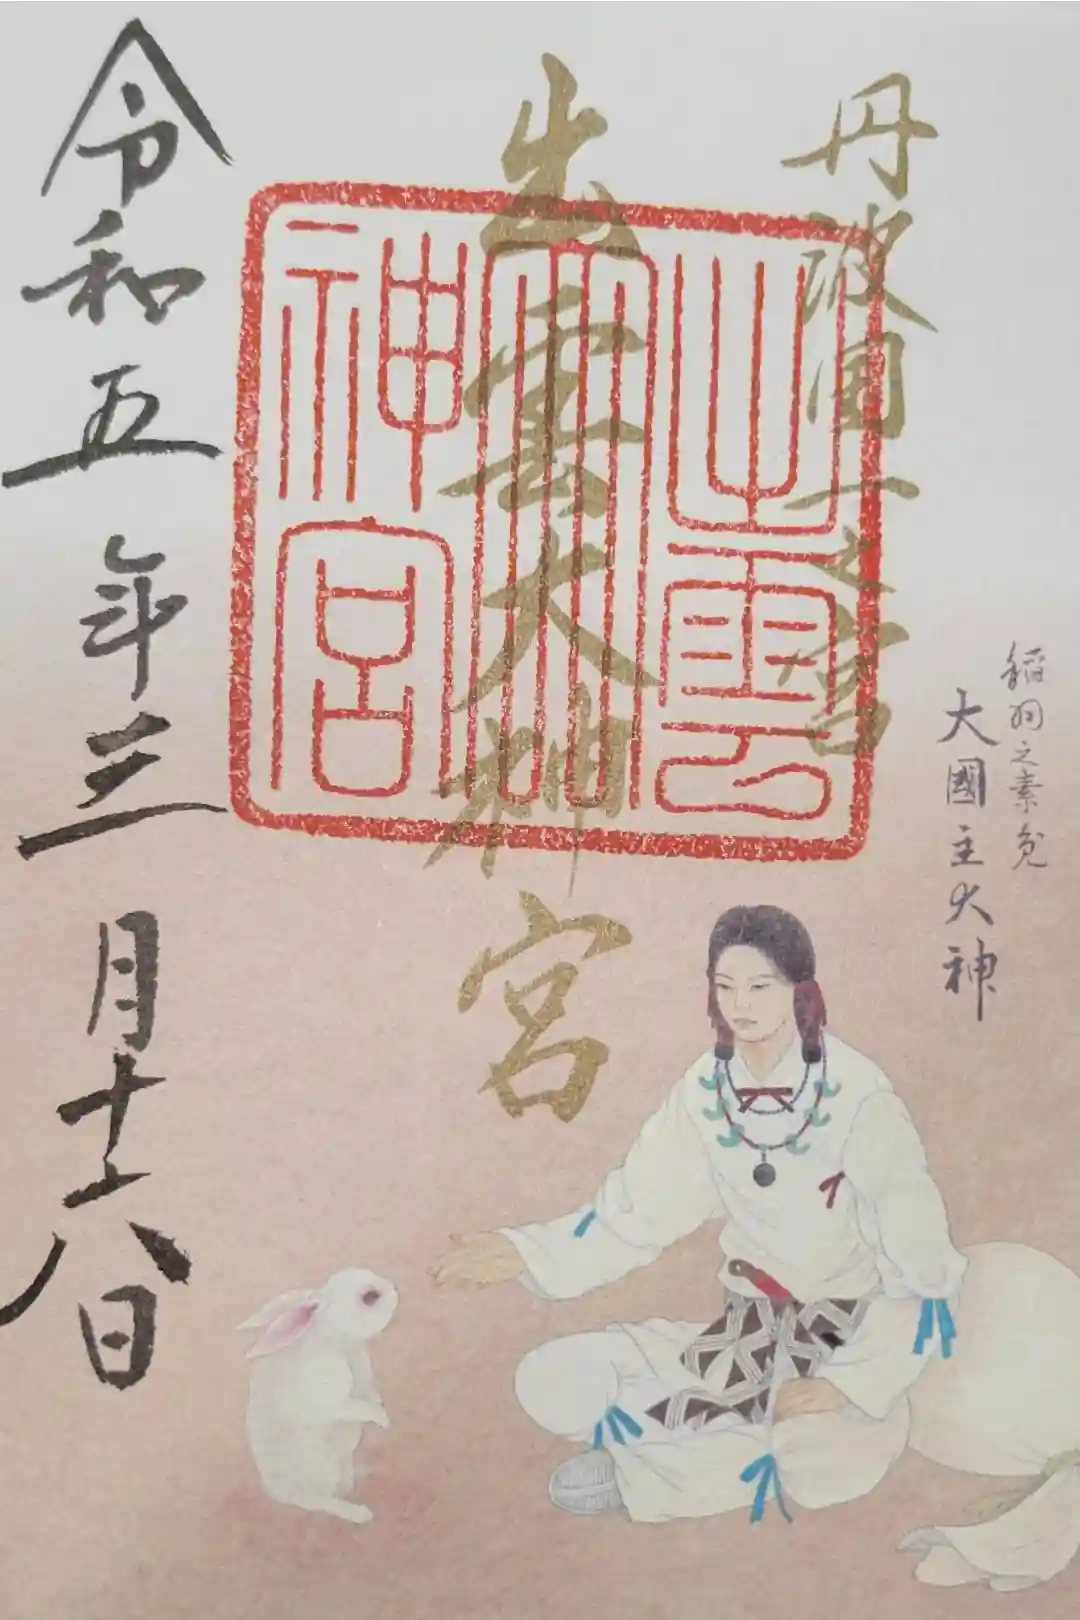 丹波國一之宮
出雲大神宮
出雲
大
神宮
令和五年三月十八日
稲羽之素兎
大國主大神